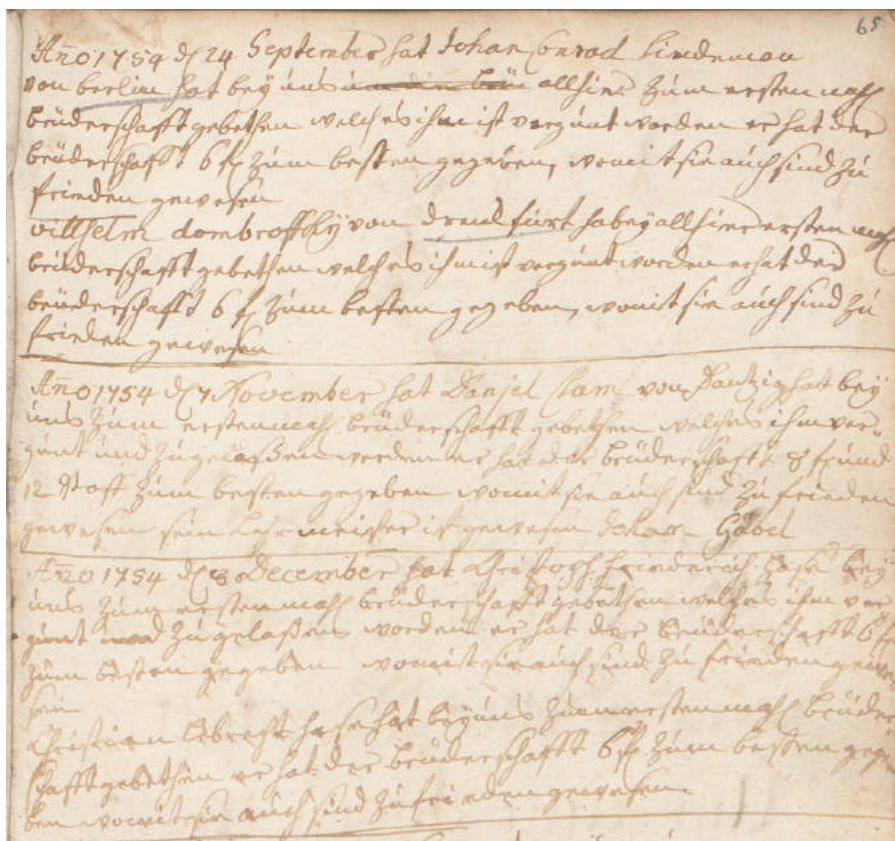 65
Año 1754 dḥ 24 September hat Johan Conrad Lindeman
von berlin hat beÿ uns allhier zum ersten mahl
brüderschafft gebethen welches ihm ist vergünt worden er hat der
brüderschafft 6 fl zum besten gegeben, womit sie auch sind zu
frieden gewesen
willhelm dombroffskÿ von drenckfurt habeÿ allhier ersten mahl
brüderschafft gebethen welches ihm ist vergünt worden er hat der
brüderschafft 6 fl zum besten gegeben, womit sie auch sind zu
frieden gewesen
Año 1754 dḥ 7 November hat Danjel Clam von Dantzig hat beÿ
uns zum ersten mahl brüderschafft gebethen welches ihm ver-
günt und zugelaßen worden er hat der brüderschafft 8 fl und
12 zum besten gegeben womit sie auch sind zu frieden
gewesen sein Lehrmeister ist gewesen Johan Gabel
Año 1754 dḥ 8 December hat Christoph friederich Hase beÿ
uns zum ersten mahl brüderschafft gebethen welches ihm ver
günt und zugelaßen worden er hat der brüderschafft 6 fl
zum besten gegeben womit sie auch sind zu frieden gewe
sein
Christian Lebrecht hase hat beÿ uns zum ersten mahl brüder
schafft gebethen er hat der brüderschafft 6 fl zum besten gege
ben womit sie auch sind zufrieden gewesen